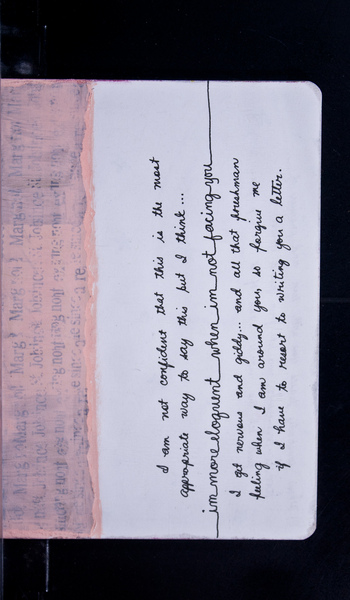 I am not confident that this is the most
appropriate way to say this but I think...
im more eloquent when im not facing you
I get nervous and giddy... and all that freshman
feeling when I am around you, so forgive me
if I have to resort to writing you a letter.